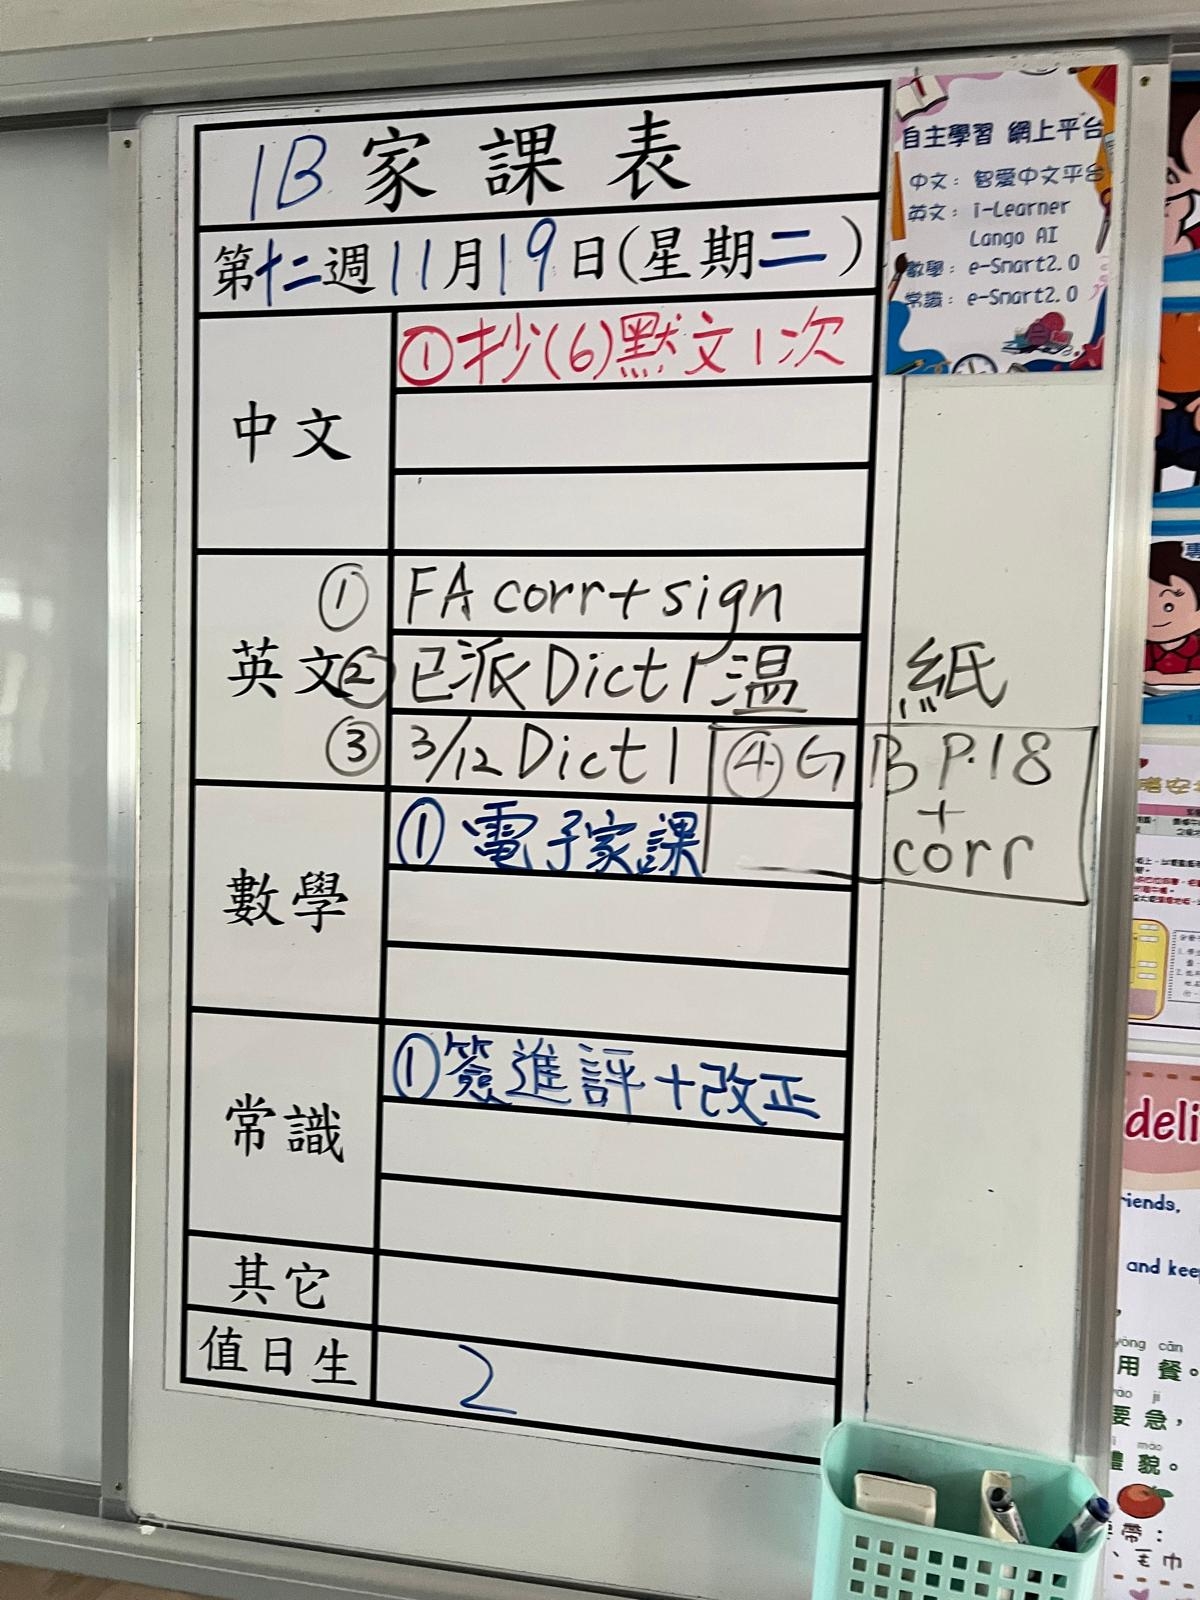 1B 家課表
第十二週 11月19日(星期二)
中文
①抄(6)默文1次
英文
① FA corr + sign
② 已派 Dict 1 温 紙
③ 3/12 Dict 1
④ GB P.18
+
corr
數學
① 電子家課
常識
① 簽進評+改正
其它
值日生
2
自主學習 網上平台
中文: 智愛中文平台
英文: i-Learner
Lango AI
數學: e-Smart2.0
常識: e-Smart2.0
and keep
yòng cān
用餐。
要急,
mào
禮貌。
、毛巾